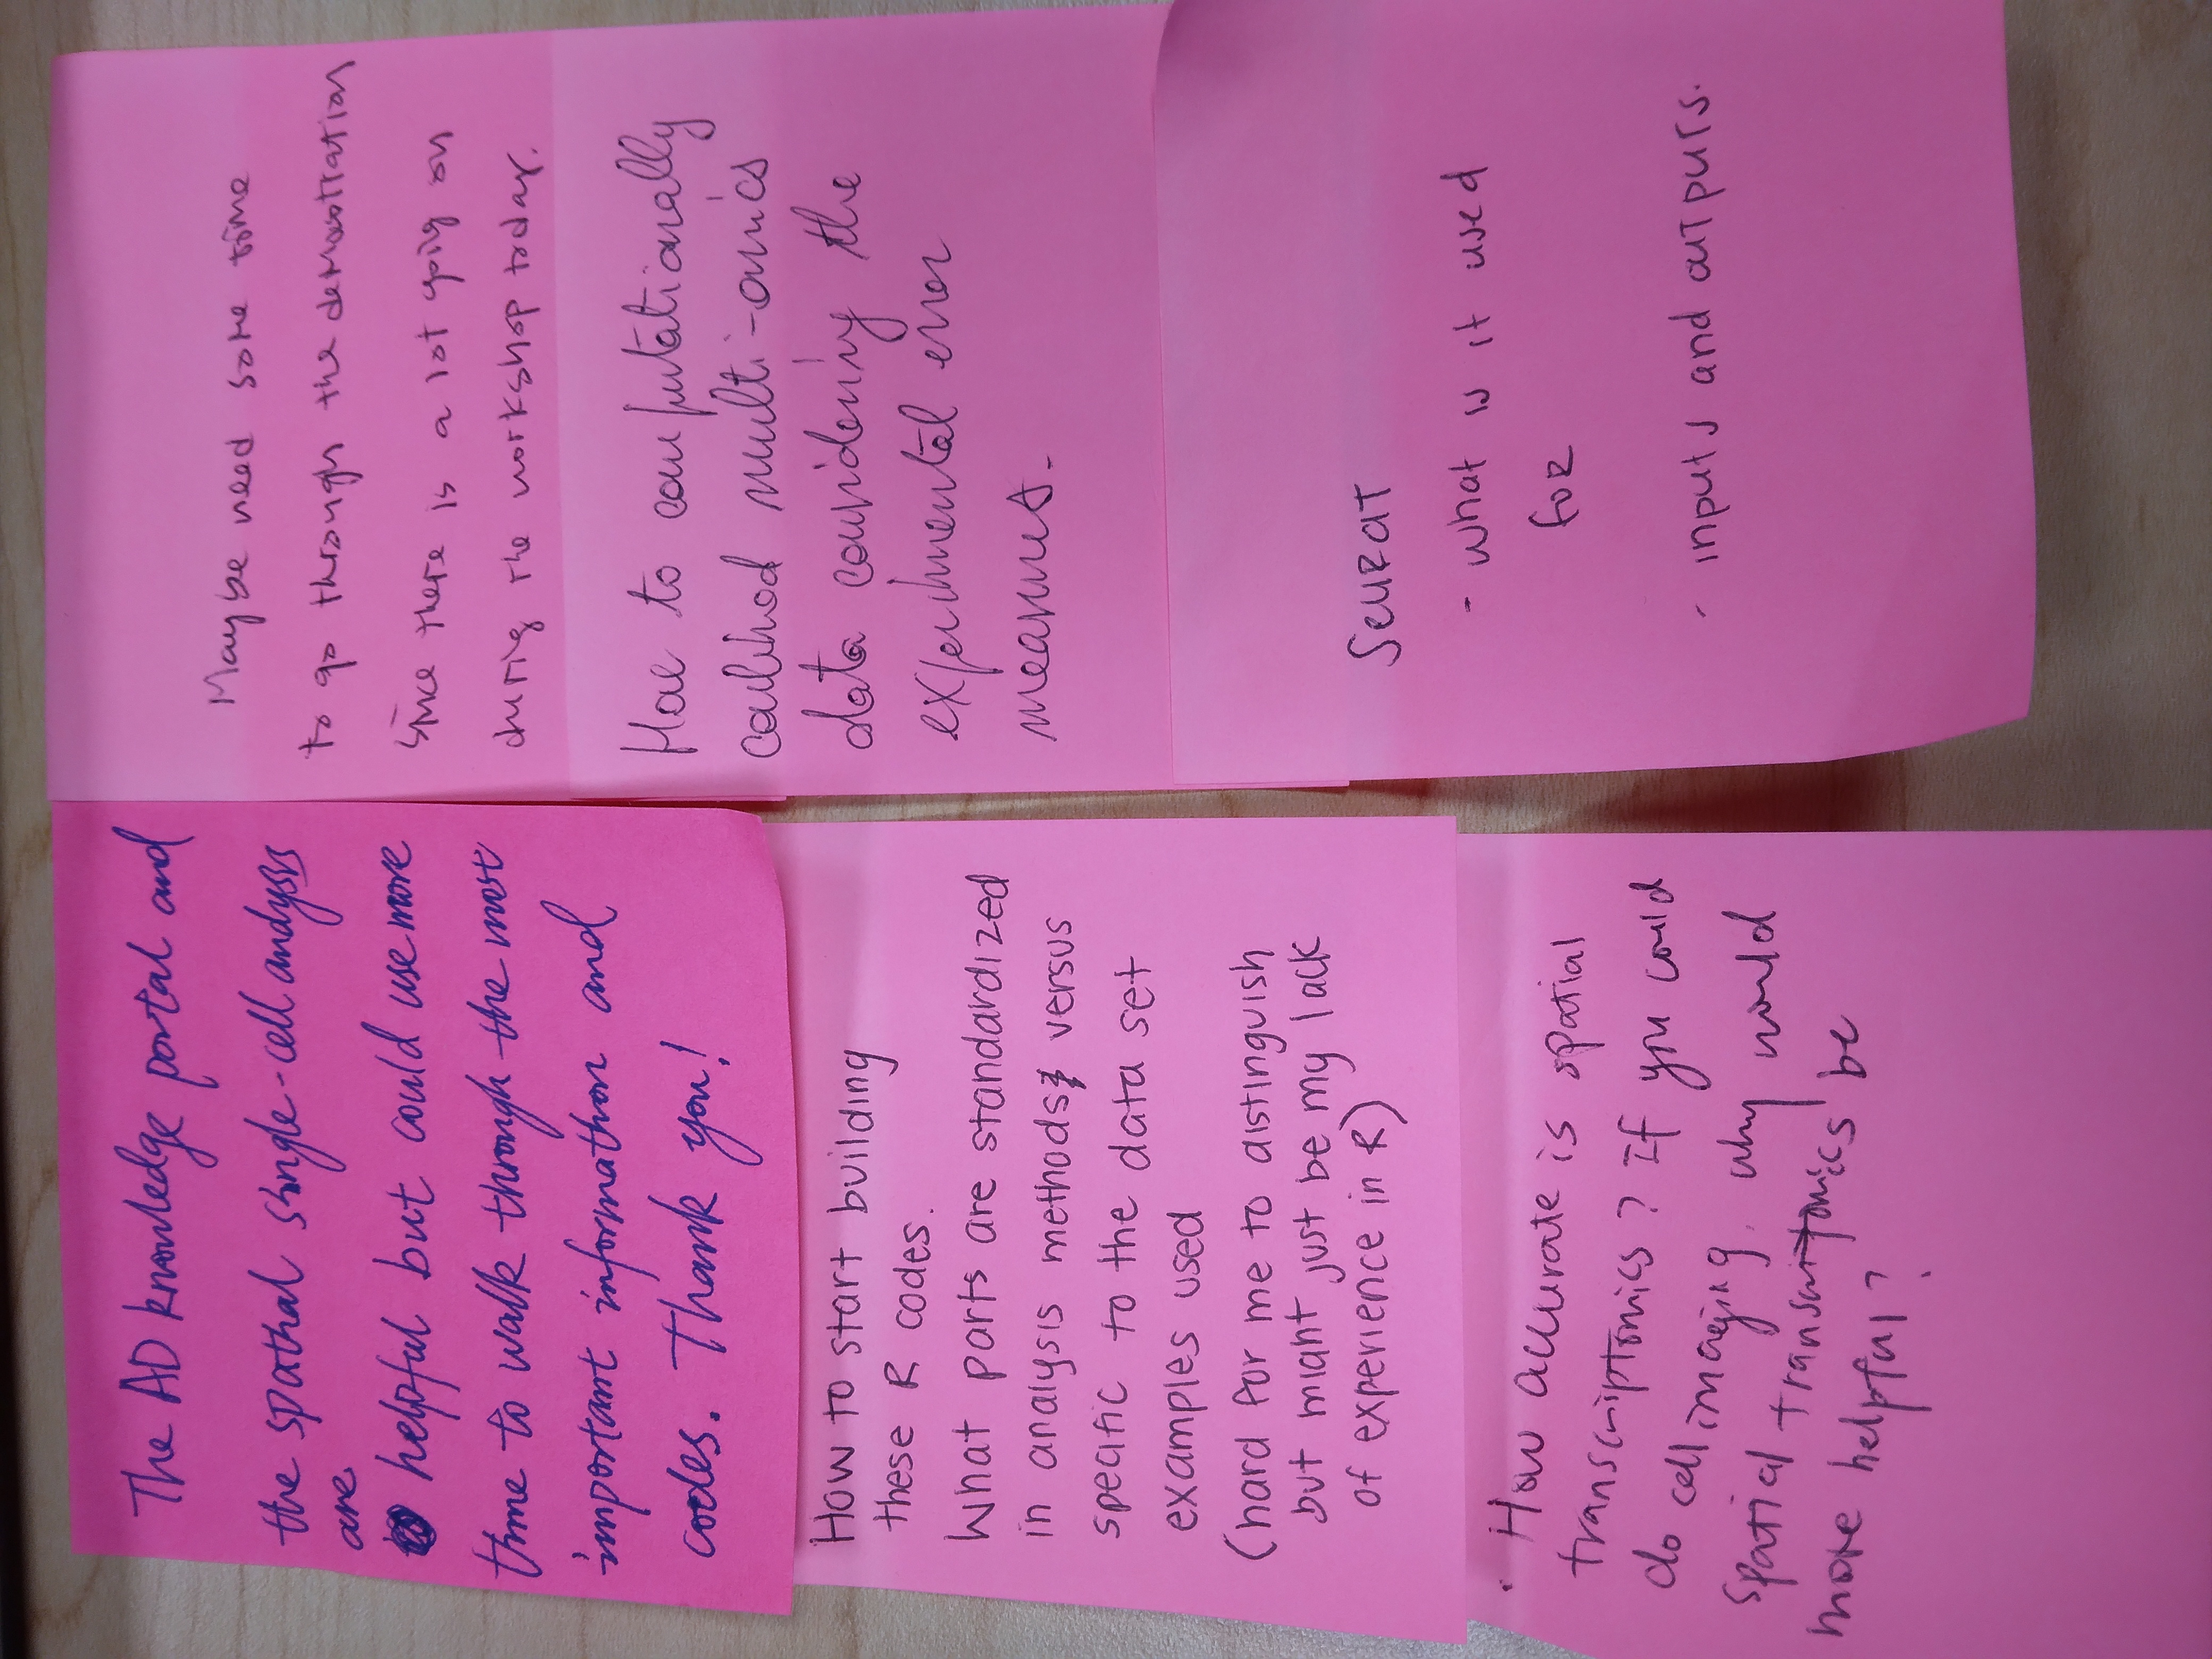 The AD knowledge portal and
the spatial single-cell analysis
are
helpful but could use more
time to walk through the most
important information and
codes. Thank you!
How to start building
these R codes.
What parts are standardized
in analysis methods versus
specific to the data set
examples used
(hard for me to distinguish
but might just be my lack
of experience in R)
• How accurate is spatial
transcriptomics? If you could
do cell imaging, why would
spatial transcritomics be
more helpful?
Maybe need some time
to go through the demonstration
since there is a lot going on
during the workshop today.
to computationally
multi-omics
data considering the
experimental error
measures.
SEURAT
- what is it used
for
- inputs and outputs.